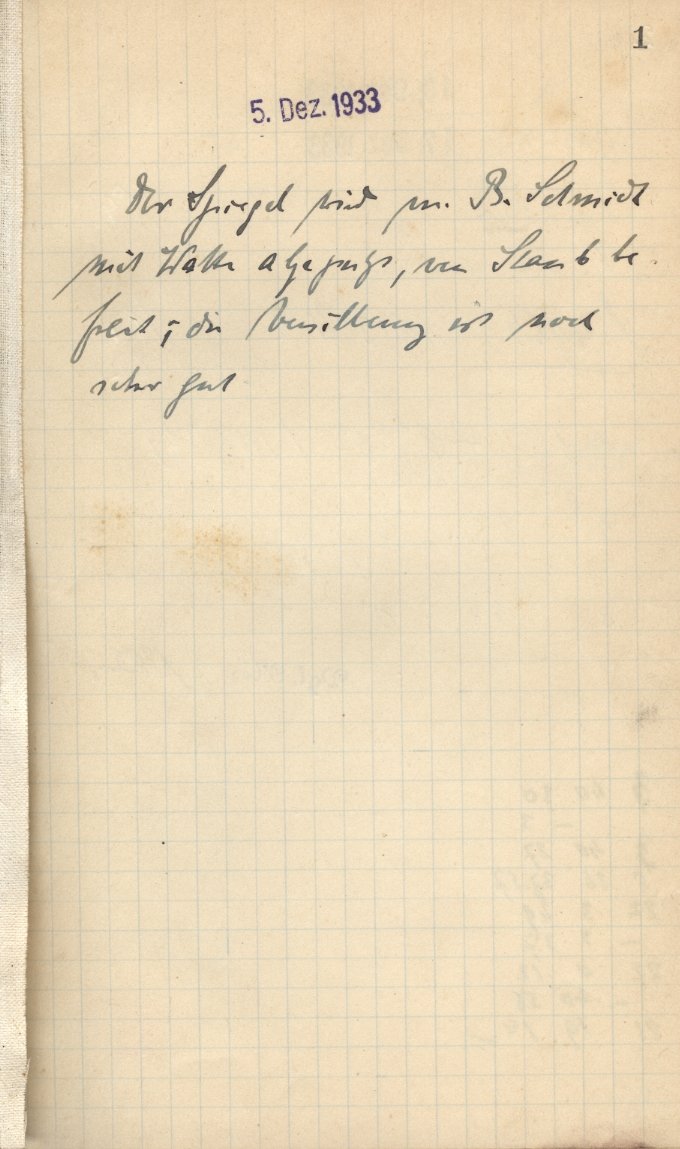 1
5. Dez. 1933
Der Spiegel wird m. B. Schmidt
mit Watte abgeputzt, von Staub be
freit; die Versilberung ist noch
sehr gut